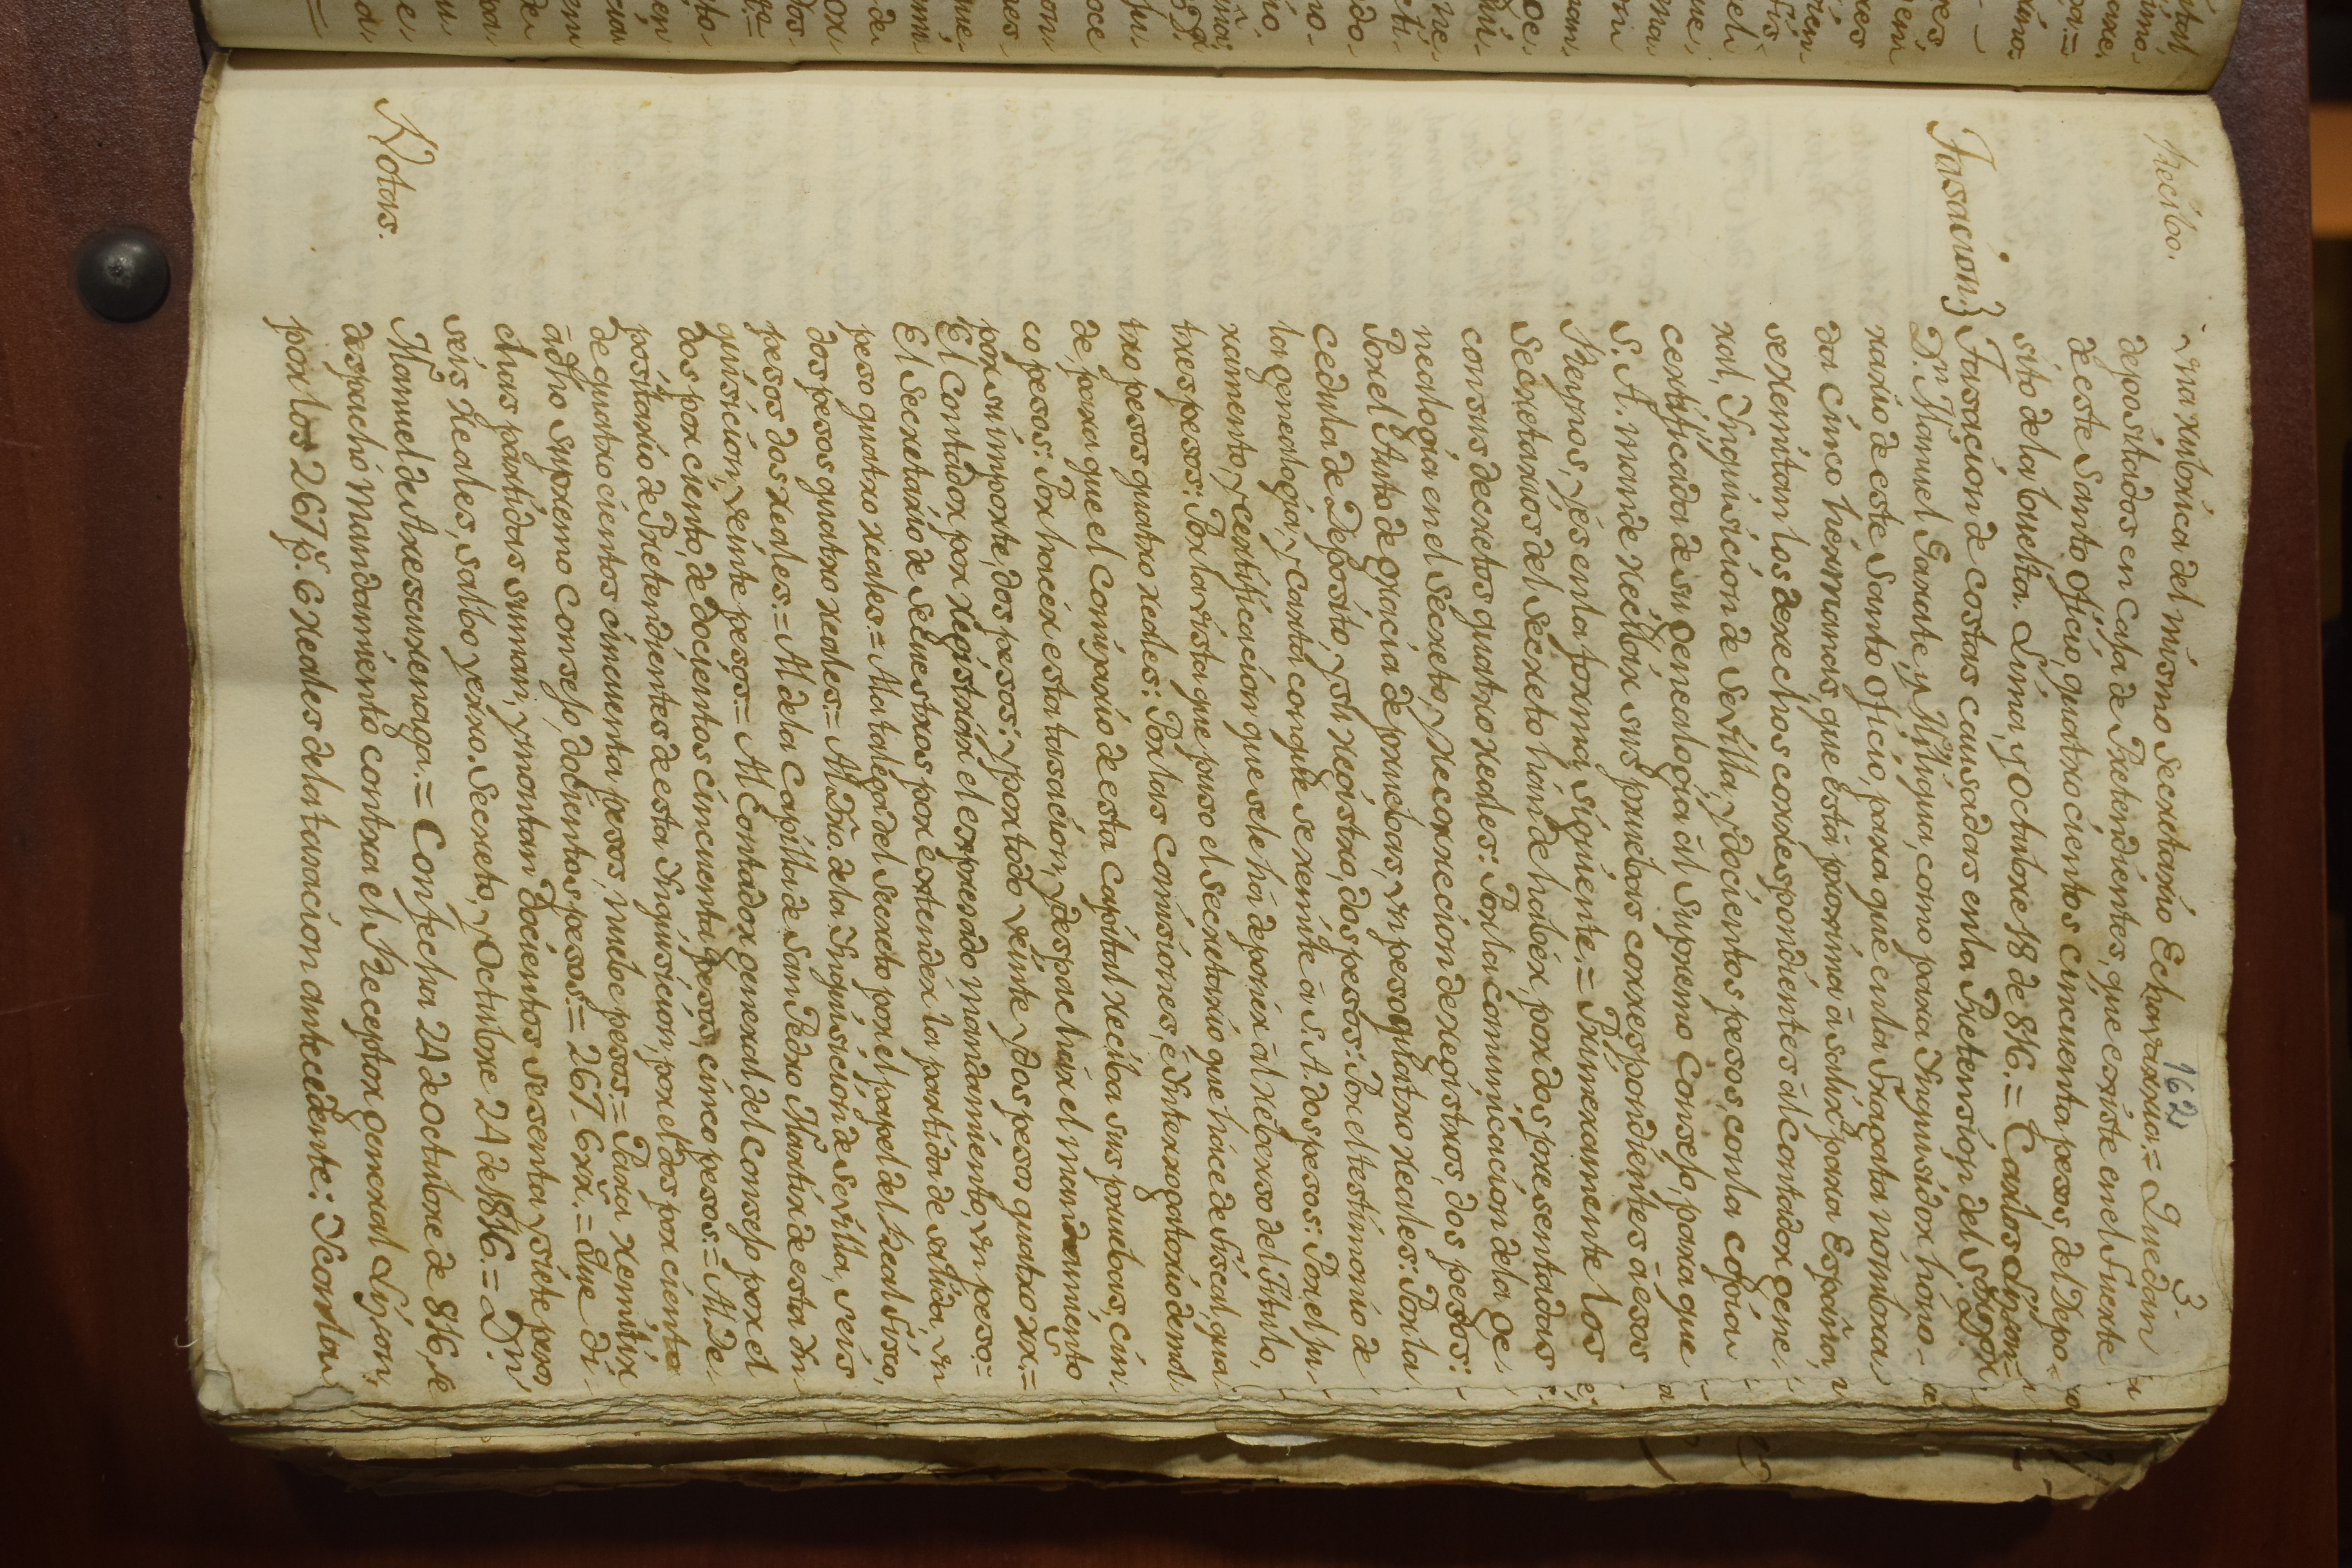 162
3.
Recibo.
Una rubrica del mismo Secretario Echavarria.= Quedan
depositados en Caja de Pretendientes, que existe en el Fuerte
de este Santo Oficio, quatrocientos cincuenta pesos, del Depo-
sito de la buelta. Lima, y Octubre 18 de 816.= Carlos Lison=
Tasacion.} Tasacion de costas causadas en la Pretension del Sõr Dor
Dn. Manuel Garate, y Milìgua, como para Inquisidor hono-
rario de este Santo Oficio, para que en la Fragata nombra-
da Cinco hérmanas, que está proxima á salir para España,
se remitan los derechos correspondientes al Contador gene-
ral, Inquisicion de Sevilla, y docientos pesos, con la copia
certificada de su genealogia al Supremo Consejo, para que
S. A. mande recibir sus pruebas correspondientes á esos
Reynos, y és en la forma siguiente.= Primeramente los
Secretarios del Secreto hán de habér, por dos presentadas
con sus decretos quatro reales: Por la comunicacion de la ge-
nealogía en el Secreto, y Recorreccion de registros, dos pesos:
Por el Auto de gracia de pruebas, un peso quatro reales: Por la
Cedula de Deposito, y su registro, dos pesos: Por el testimonio de
la genealogia, y Carta con que se remite á S. A. dos pesos: Por el ju-
ramento, y certificacion que se le há de ponér al reberso del Titulo,
tres pesos: Por la vista que puso el Secretario que hice de Fiscal qua-
tro pesos quatro reales: Por las Comisiones, é Interrogatorio demil
de, para que el Comisario de esta Capital reciba sus pruebas, cin-
co pesos: Por hacér esta tasacion, y despachar el mandamiento
por su importe, dos pesos: y por todo veinte y dos pesos quatro rr.=
El Contador por registrar el expresado mandamiento, un peso:=
El Secretario de Secuestros por extendér la partida de salida, un
peso quatro reales.= Al Alcayde del Secreto por el papel del Real Fisco,
dos pesos quatro reales.= Al Pño. de la Inquisicion de Sevilla, seis
pesos dos reales.= Al de la Capilla de San Pedro Martir de esta In-
quisicion, veinte pesos.= Al Contador general del Consejo por el
dos por ciento, de docientos cincuenta pesos, cinco pesos.= Al De-
positario de Pretendientes de esta Inquisicion, por el dos por ciento
de quatrocientos cincuenta pesos, nuebe pesos.= Para remitir
á dho Supremo Consejo, docientos pesos.= 267-6rr.= Que di-
chas partidas suman, y montan docientos sesenta y siete pesos
seis reales, salbo yerro. Secreto, y Octubre 24 de 1816.= Dn.
Notas. Manuel de Arescurenaga.= Con fecha 24 de Octubre de 816, se
despachó Mandamiento contra el Receptor general Lison,
por los 267 p.s 6 reales de la tasacion antecedente: I Carta